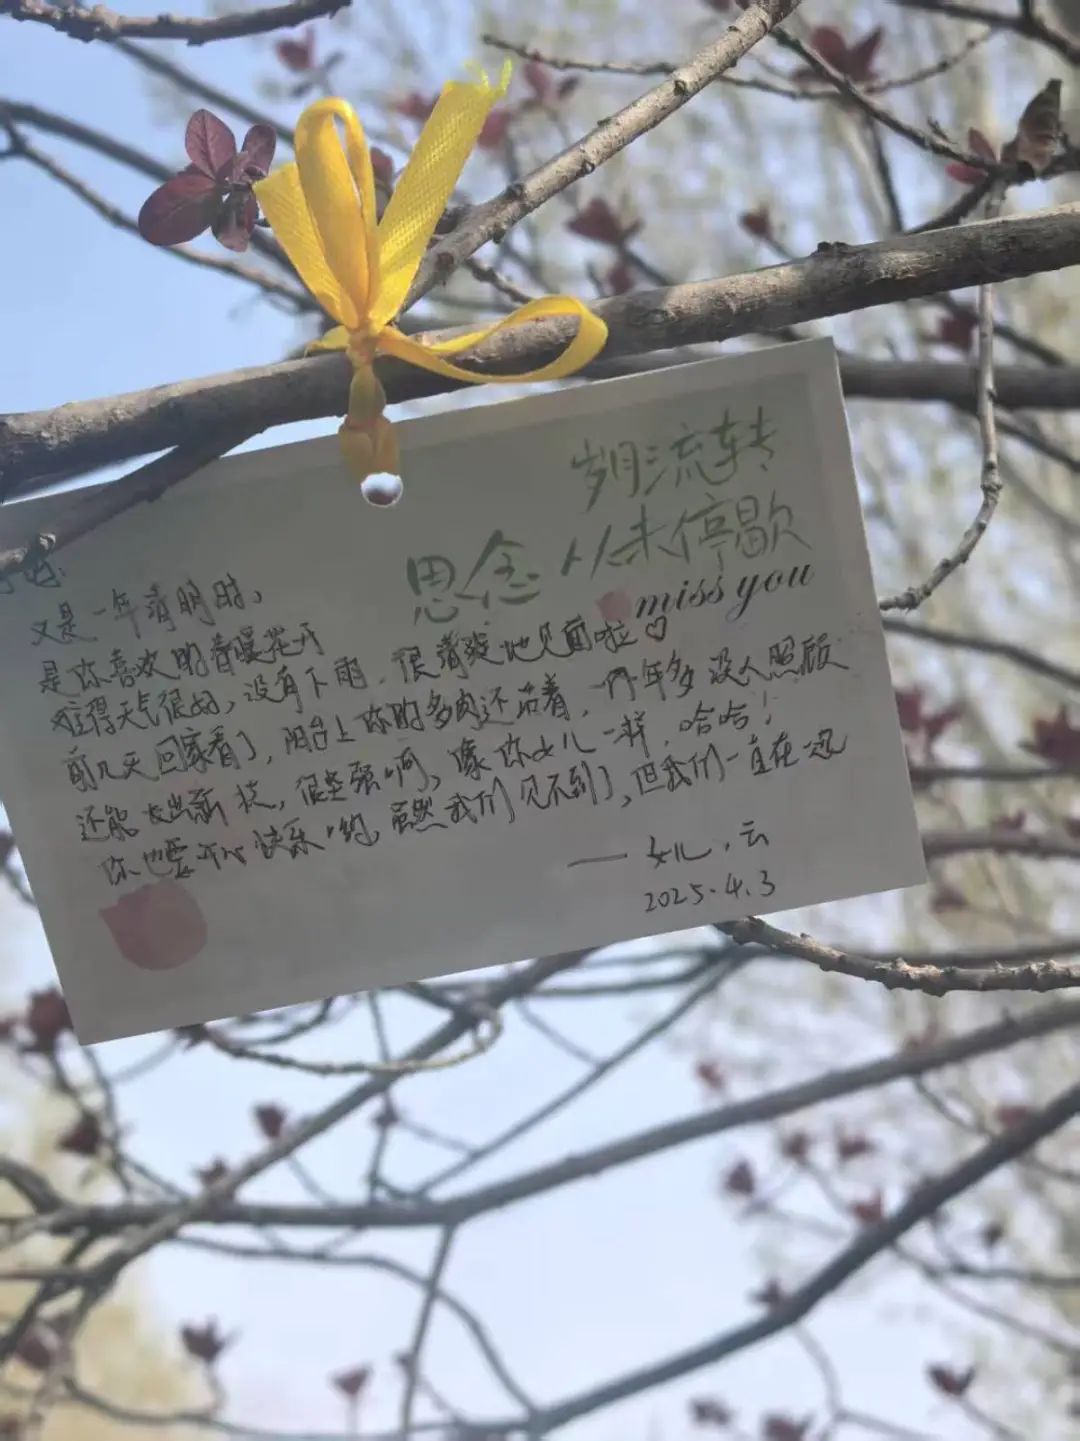 岁月流转
思念 从未停歇
miss you
好:
又是一年清明时,
是你喜欢的春暖花开
难得天气很好,没有下雨,很清爽地见面啦♡
前几天回家看了,阳台上你的多肉还活着,一年多没人照顾
还能长出新枝,很坚强啊,像你女儿一样,哈哈!
你也要开心快乐哟,虽然我们见不到了,但我们一直在一起
—— 女儿.云
2025.4.3